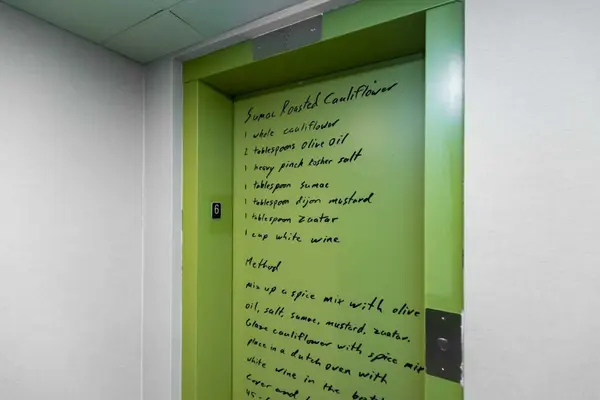 Sumac Roasted Cauliflower
1 whole cauliflower
2 tablespoons olive oil
1 heavy pinch kosher salt
1 tablespoon sumac
1 tablespoon dijon mustard
1 tablespoon zaatar
1 cup white wine
6
Method
Mix up a spice mix with olive
oil, salt, sumac, mustard, zaatar.
Glaze cauliflower with spice mix
place in a dutch oven with
white wine in the
cover and
45